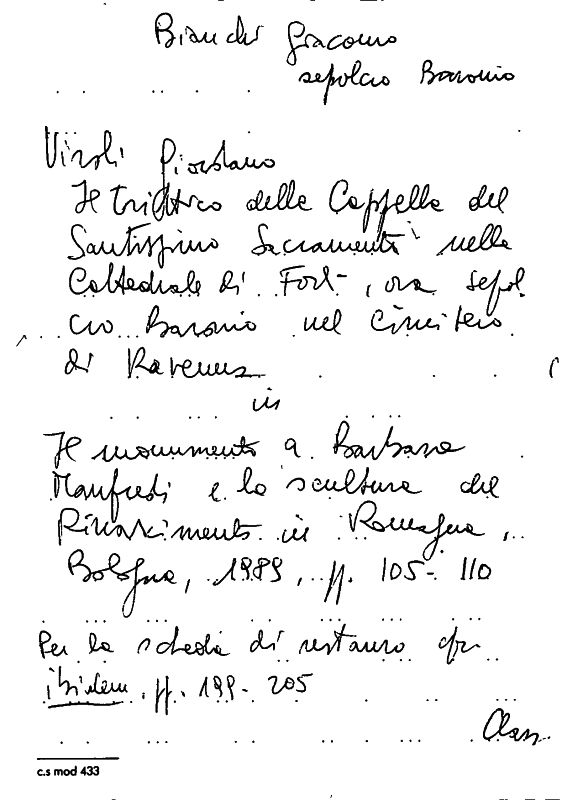 Bianchi Giacomo
sepolcro Baronio
Viroli Giordano
Il trittico della Cappella del
Santissimo Sacramento nella
Cattedrale di Forlì, ora sepol
cro Baronio nel Cimitero
di Ravenna
in
Il monumento a Barbara
Manfredi e la scultura del
Rinascimento in Romagna,
Bologna, 1989, pp. 105-110
Per la scheda di restauro cfr
ibidem. pp. 199-205
c.s mod 433